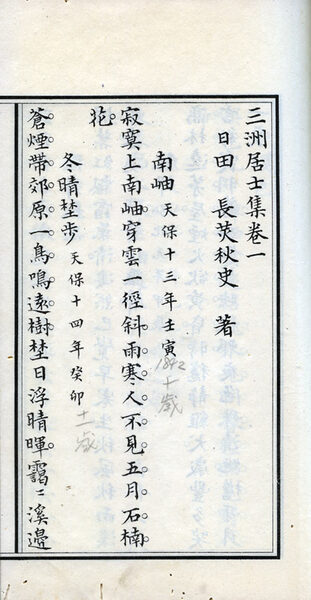 三洲居士集卷一
日田 長炗秋史 著
南岫 天保十三年壬寅 1842 十歳
寂寞上南岫穿雲一徑斜雨寒人不見五月石楠
花
冬晴埜歩 天保十四年癸卯 十一歳
蒼煙帶郊原一鳥鳴遠樹埜日浮晴暉靄〻溪邉